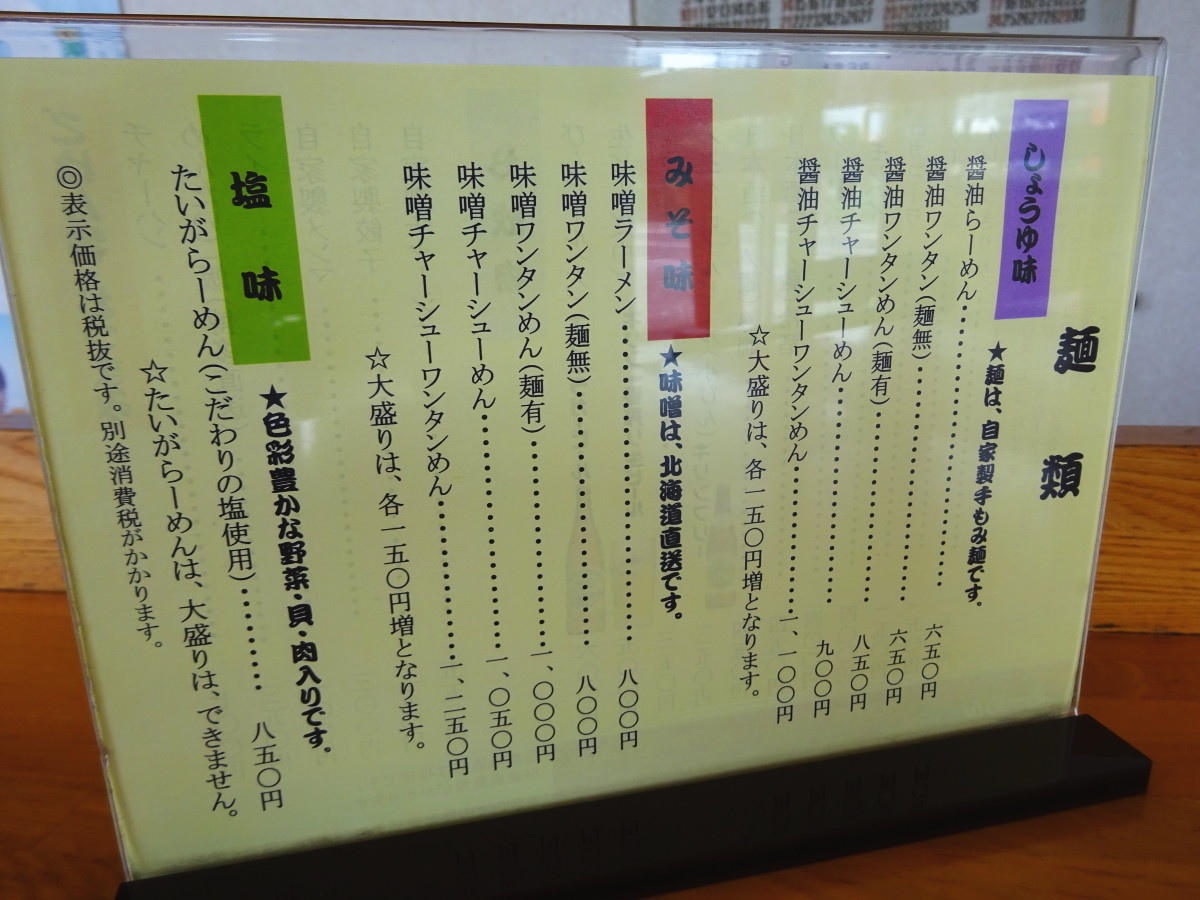 麺類
しょうゆ味
★麺は、自家製手もみ麺です。
醤油らーめん‥‥‥‥‥‥‥‥‥‥ 六五〇円
醤油ワンタン(麺無)‥‥‥‥‥‥‥ 六五〇円
醤油ワンタンめん(麺有)‥‥‥‥‥ 八五〇円
醤油チャーシューめん‥‥‥‥‥‥ 九〇〇円
醤油チャーシューワンタンめん‥‥‥一、一〇〇円
☆大盛りは、各一五〇円増となります。
みそ味
★味噌は、北海道直送です。
味噌ラーメン‥‥‥‥‥‥‥‥‥‥ 八〇〇円
味噌ワンタン(麺無)‥‥‥‥‥‥‥ 八〇〇円
味噌ワンタンめん(麺有)‥‥‥‥‥一、〇〇〇円
味噌チャーシューめん‥‥‥‥‥‥一、〇五〇円
味噌チャーシューワンタンめん‥‥‥一、二五〇円
☆大盛りは、各一五〇円増となります。
塩味
★色彩豊かな野菜・貝・肉入りです。
たいがらーめん(こだわりの塩使用)‥‥‥ 八五〇円
☆たいがらーめんは、大盛りは、できません。
◎表示価格は税抜です。別途消費税がかかります。